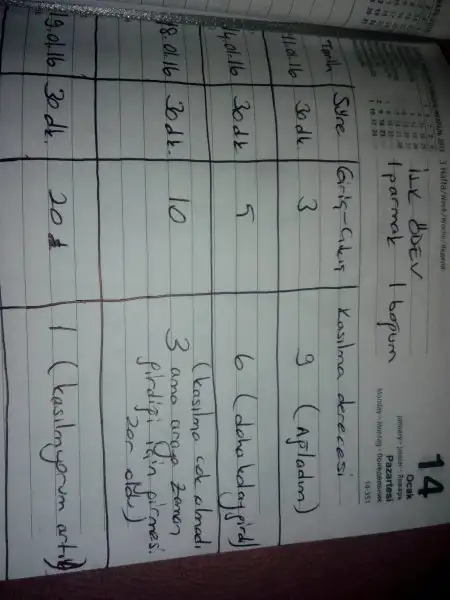 14
Ocak
January - Januar - Январь
Pazartesi
Monday - Montag - Понедельник
14-351
3 Hafta/Week/Woche/Неделя
İLK ÖDEV
1 parmak 1 boğum
Tarih Süre Giriş-Çıkış Kasılma derecesi
11.01.16 30 dk 3 9 (Ağladım)
14.01.16 30 dk 5 6 (daha kolay girdi)
18.01.16 30 dk. 10 3 (kasılma çok olmadı
ama araya zaman
girdiği için girmesi
zor oldu)
19.01.16 30 dk. 20 1 (kasılmıyorum artık)